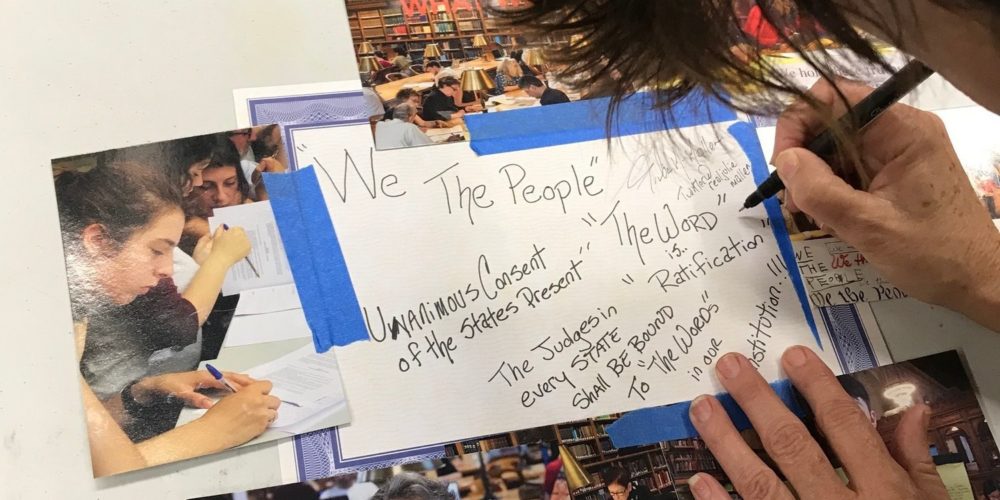 WHAT
We ho
"We The People"
Unanimous Consent
of the States Present"
"The WORD"
is..
"Ratification"
The Judges in
every STATE
Shall BE BOUND
To "The WORDS"
in our
nstitution..!!!
WE
THE
PEOPLE
We the Peo
We th